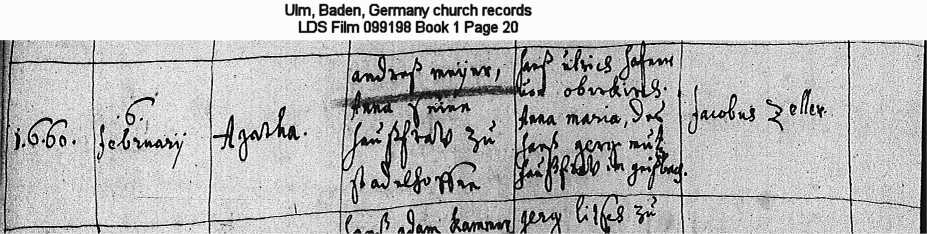 Ulm, Baden, Germany church records
LDS Film 099198 Book 1 Page 20
1.6.60.
6.
februarij
Agatha.
andreß meyer,
Anna seine
haußfraw zu
stadelhoffen
hanß ulrich
von oberkirch.
Anna maria, des
hanß gerg
haußfraw in
Jacobus Zeller.
hanß adam kammer
gerg zu